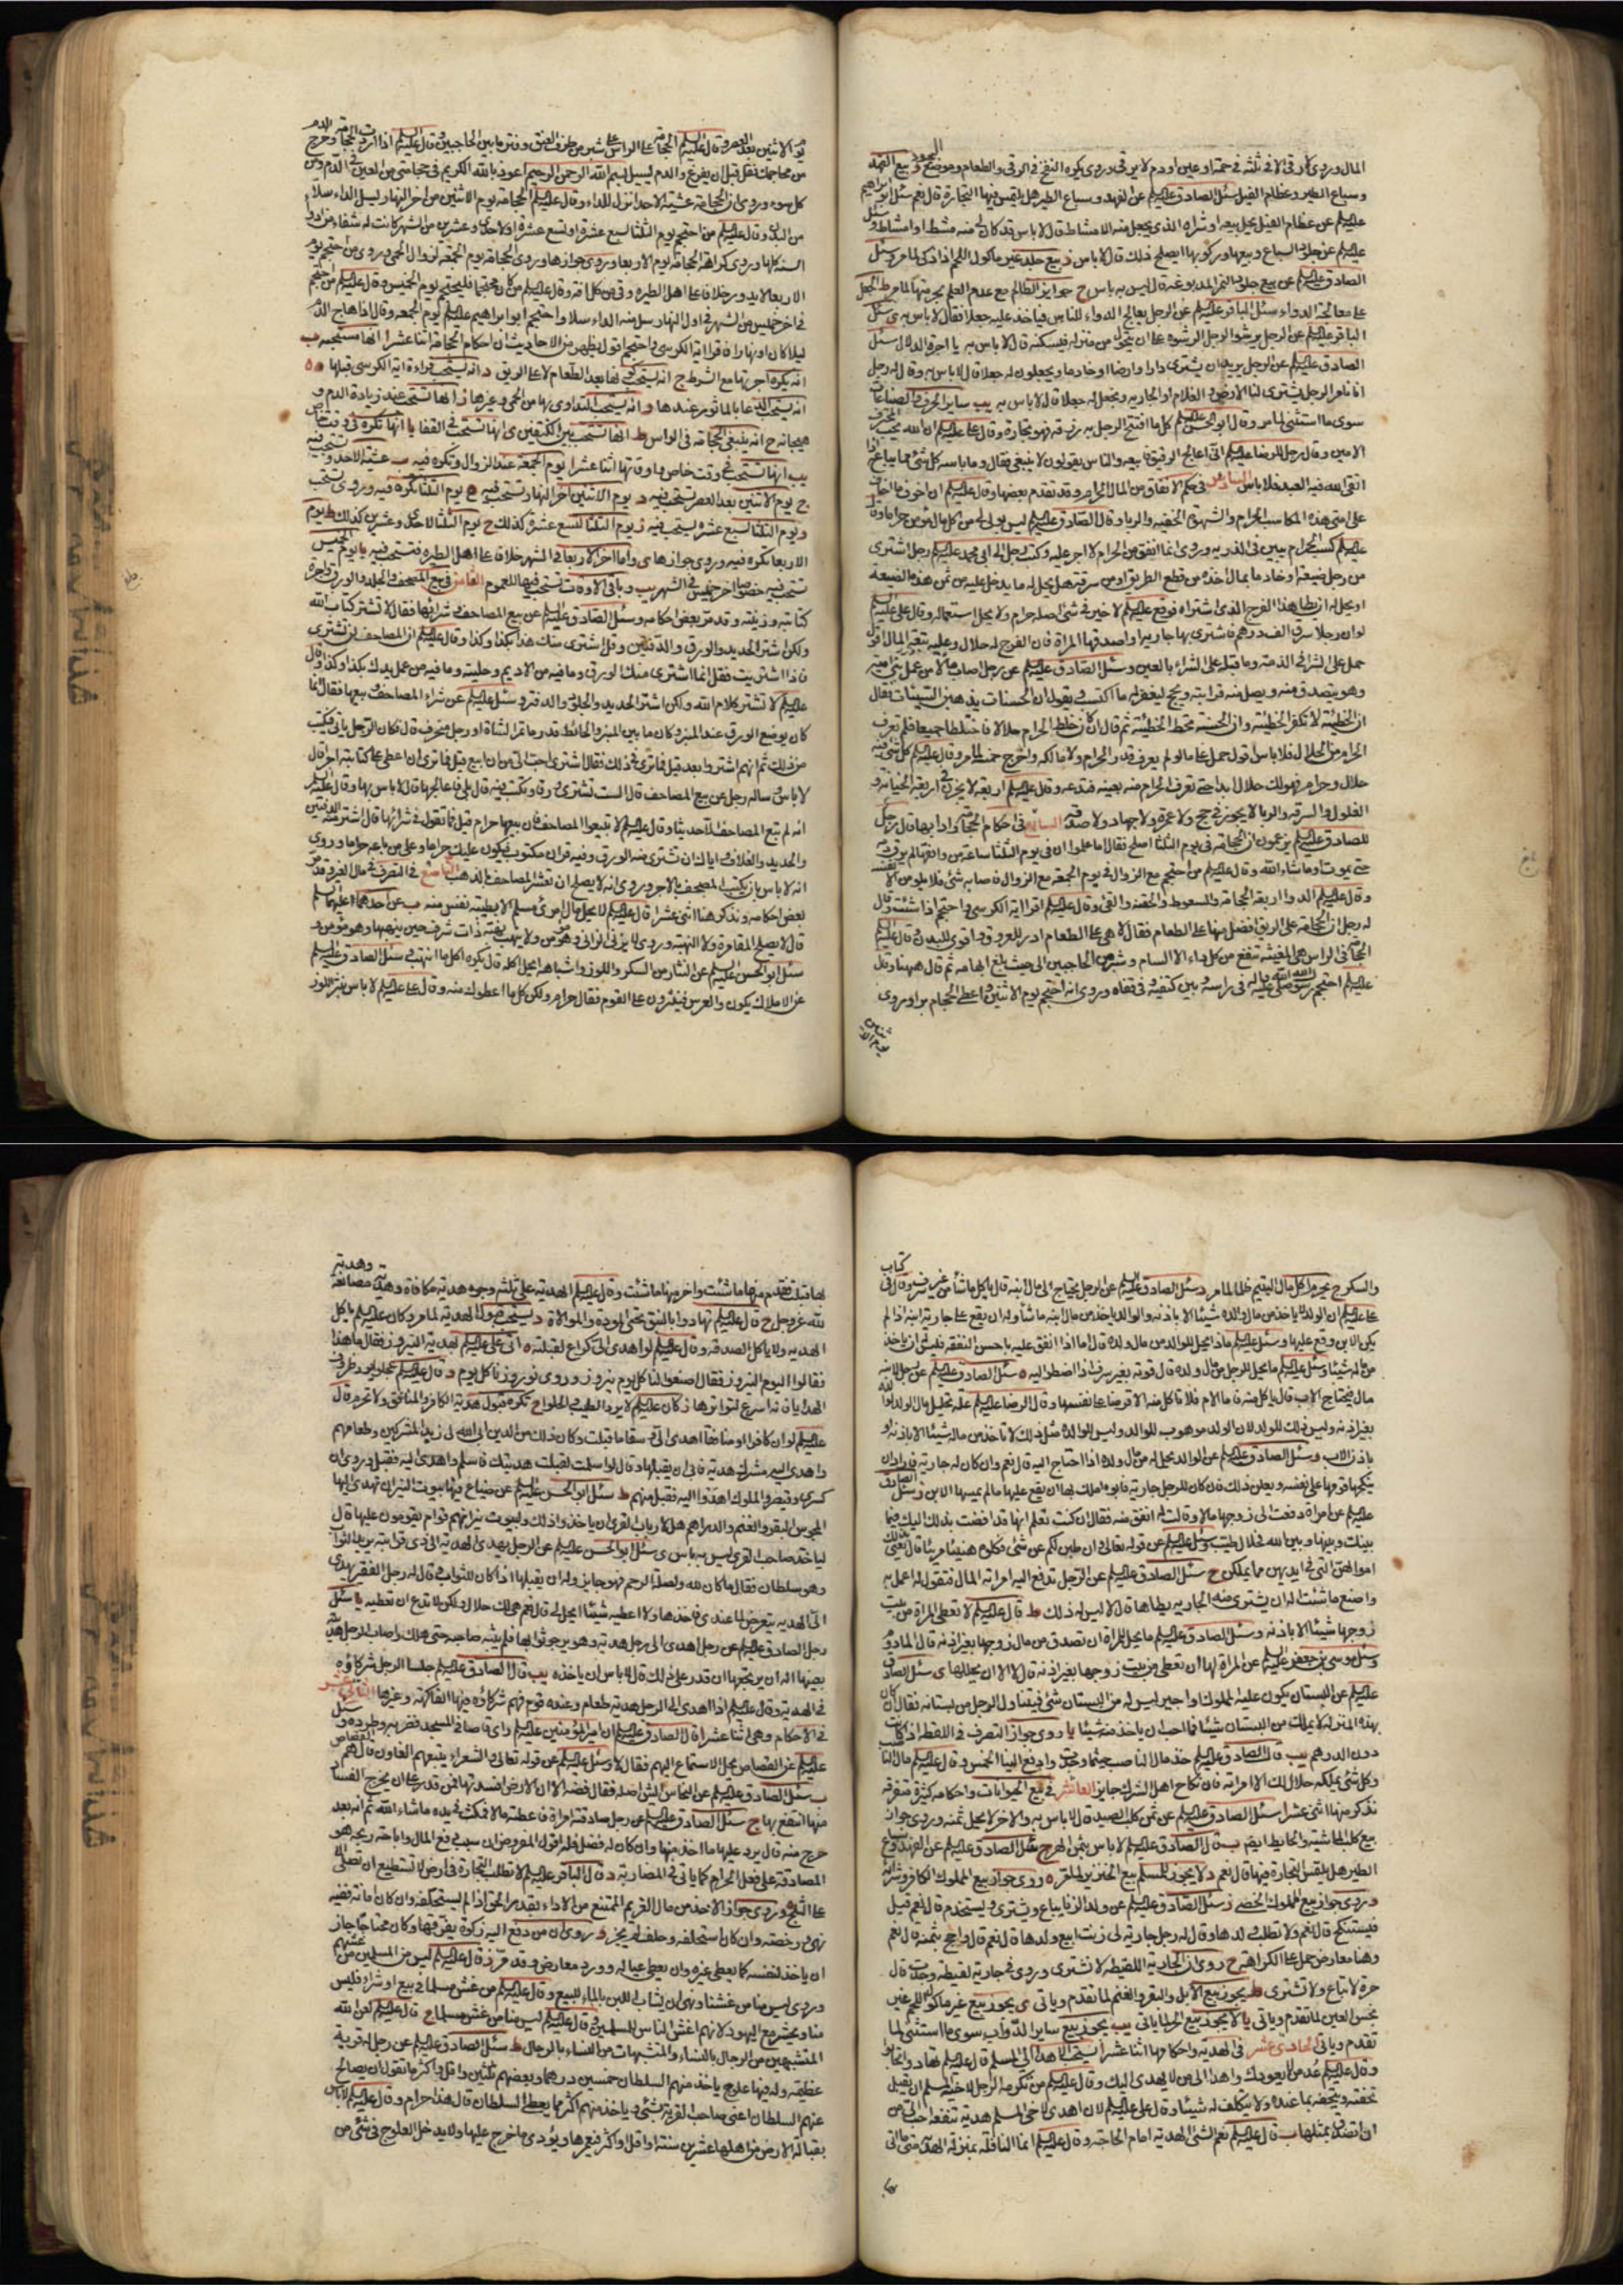 المال وروي لا رقى الا في ثلثة في حمة او عين او دم لا يرقى وروي يكره النفخ في الرقى والطعام وموضع السجود و بيع الفهد
وسباع الطير وعظام الفيل سئل الصادق عليه السلام عن الفهود وسباع الطير هل يلتمس فيها التجارة قال نعم سئل ابو ابراهيم
عليه السلام عن عظام الفيل يحل بيعه او شراه الذي يجعل منه الامشاط قال لا باس قد كان لي منه مشط او امشاط وسئل
عليه السلام عن جلود السباع وبيعها وركوبها ايصلح ذلك قال لا باس
الصادق عليه السلام عن بيع جلود النمر المدبوغة قال ليس به باس ح جوايز الظالم مع عدم العلم بحرمتها لما مر ط الجعل
على معالجة الدواء سئل الباقر عليه السلام عن الرجل يعالج الدواء للناس فياخذ عليه جعلا فقال لا باس به ي سئل
الباقر عليه السلام عن الرجل يرشو الرجل الرشوة على ان يتحول من منزله فيسكنه قال لا باس به يا اجرة الدلال سئل
الصادق عليه السلام عن الرجل يريد ان يشترى دارا وارضا وخادما ويجعلون له جعلا قال لا باس به وقال له رجل
انا نامر الرجل يشترى لنا الارض و الغلام او الجارية ونجعل له جعلا قال لا باس به يب ساير الحرف والصناعات
سوى ما استثنى لما مر وقال ابو الحسن عليه السلام كل ما افتتح الرجل به رزقه فهو تجارة وقال على عليه السلام ان الله يحب المحترف
الامين وقال رجل للرضا عليه السلام انى اعالج الرقيق فابيعه والناس يقولون لا ينبغى فقال وما باسه كل شئ مما يباع اذا
اتقى الله فيه العبد فلا باس السادس في حكم الانفاق من المال الحرام وقد تقدم بعضها وقال عليه السلام ان اخوف ما اخاف
على امتى هذه المكاسب الحرام والشهوة الخفية والربا وقال الصادق عليه السلام ليس بولى لي من اكل مال مؤمن حراما وقال
عليه السلام كسب الحرام يبين في الذرية وروي انما انفق من الحرام لا اجر عليه وكتب رجل الى ابى محمد عليه السلام رجل اشترى
من رجل ضيعة او خادما بمال اخذه من قطع الطريق او من سرقة هل يحل له ما يدخل عليه من ثمن هذه الضيعة
او يحل له ان يطا هذا الفرج الذى اشتراه فوقع عليه السلام لا خير في شئ اصله حرام ولا يحل استعماله وقال على عليه السلام
لو ان رجلا سرق الف درهم فاشترى بها جارية او اصدقها المراة فان الفرج له حلال وعليه تبعة المال اقول
حمل على الشرا في الذمة وما قبله على الشراء بالعين وسئل الصادق عليه السلام عن رجل اصاب مالا من عمل بنى امية
وهو يتصدق منه ويصل منه قرابته ويحج ليغفر له ما اكتسب ويقول ان الحسنات يذهبن السيئات فقال
ان الخطيئة لا تكفر الخطيئة وان الحسنة تحط الخطيئة ثم قال ان كان خلط الحرام حلالا فاختلطا جميعا فلم يعرف
الحرام من الحلال فلا باس اقول حمل على ما لو لم يعرف قدر الحرام ولا مالكه واخرج خمسه لما مر وقال عليه السلام كل شئ فيه
حلال وحرام فهو لك حلال ابدا حتى تعرف الحرام منه بعينه فتدعه وقال عليه السلام اربعة لا يجزن في اربعة الخيانة و
الغلول والسرقة والربا لا يجوز في حج ولا عمرة ولا جهاد ولا صدقة السابع في احكام الحجامة وادابها قال رجل
للصادق عليه السلام يزعمون ان الحجامة في يوم الثلثا اصلح
حتى يموت او ما شاء الله وقال عليه السلام من احتجم مع الزوال في يوم الجمعة مع الزوال فاصابه شئ فلا يلومن الا نفسه
وقال عليه السلام الدواء اربعة الحجامة والسعوط والحقنة والقئ وقال عليه السلام اقرا اية الكرسي واحتجم اذا شئت وقال
له رجل ان الحجامة على الريق افضل منها على الطعام فقال لا هى على الطعام ادر للعروق واقوى للبدن وقال عليه السلام
الحجامة في الراس هى المغيثة تنفع من كل داء الا السام وشبر من الحاجبين الى حيث بلغ ابهامه ثم قال ههنا وقال
عليه السلام احتجم رسول الله صلى الله عليه واله في راسه وبين كتفيه وفى قفاه وروي انه احتجم يوم الاثنين واعطى الحجام برا وروي
يوم الاثنين
يوم الاثنين بعد العصر وقال عليه السلام الحجامة على الراس على شبر من طرف الانف وفتر ما بين الحاجبين وقال عليه السلام اذا اردت الحجامة وخرج الدم
من محاجمك فقل قبل ان يفرغ والدم يسيل بسم الله الرحمن الرحيم اعوذ بالله الكريم في حجامتى من العين في الدم ومن
كل سوء وروي ان الحجامة عشية الاحد انزل للداء وقال عليه السلام الحجامة يوم الاثنين من اخر النهار يسل الداء سلا
من البدن وقال عليه السلام من احتجم يوم الثلثا لسبع عشرة او لتسع عشرة او لاحدى وعشرين من الشهر كانت له شفاء من ادواء
السنة كلها وروي كراهة الحجامة يوم الاربعا وروي جوازها وروي الحجامة يوم الجمعة لزوال الحمى وروي من احتجم يوم
الاربعا لا يدور خلافا على اهل الطيرة وقى من كل افة وقال عليه السلام من كان محتجما فليحتجم يوم الخميس وقال عليه السلام من احتجم
في اخر خميس من الشهر في اول النهار سل منه الداء سلا واحتجم ابو ابراهيم عليه السلام يوم الجمعة وقال اذا هاج الدم
ليلا كان او نهارا فاقرا اية الكرسي واحتجم اقول يظهر من الاحاديث ان احكام الحجامة اثنا عشر ا انها مستحبة ب
انه يكره اجرتها مع الشرط ج انه يستحب كونها بعد الطعام لا على الريق د انه يستحب قراءة اية الكرسي قبلها ه
انه يستحب الدعا بالماثور عندها و انه يستحب التداوى بها من الحمى وغيرها ز انها تستحب عند زيادة الدم و
هيجانه ح انه ينبغى الحجامة في الراس ط انها تستحب بين الكتفين ي انها تستحب في القفا يا انها تكره في وقت خاص
يب انها تستحب في وقت خاص واوقاتها اثنا عشر ا يوم الجمعة عند الزوال وتكره فيه ب عشية الاحد وتستحب فيه
ج يوم الاثنين بعد العصر تستحب فيه د يوم الاثنين اخر النهار وتستحب فيه ه يوم الثلثا تكره فيه وروي تستحب
و يوم الثلثا لسبع عشرة يستحب فيه ز يوم الثلثا لتسع عشرة كذلك ح يوم الثلثا لاحدى وعشرين كذلك ط يوم
الاربعا تكره فيه وروي جوازها ي واما اخر الاربعا في الشهر خلافا على اهل الطيرة فتستحب فيه يا يوم الخميس
تستحب فيه خصوصا اخر خميس في الشهر يب وباقى الاوقات تستحب فيها للعموم الثامن في بيع المصحف والجلد والورق واجرة
كتابته وزينته وقد مر بعض احكامه وسئل الصادق عليه السلام عن بيع المصاحف وشرائها فقال لا تشتر كتاب الله
ولكن اشتر الحديد والورق والدفتين وقل اشترى منك هذا بكذا وكذا وقال عليه السلام ان المصاحف لن تشترى
فاذا اشتريت فقل انما اشترى منك الورق وما فيه من الاديم وحليته وما فيه من عمل يدك بكذا وكذا وقال
عليه السلام لا تشتر كلام الله ولكن اشتر الحديد والجلود والدفتر وسئل عليه السلام عن شراء المصاحف وبيعها فقال انما
كان يوضع الورق عند المنبر وكان ما بين المنبر والحائط قدر ما تمر الشاة او رجل منحرف قال فكان الرجل ياتى فيكتب
من ذلك ثم انهم اشتروا بعد قيل فما ترى في ذلك فقال اشترى احب الى من ان ابيع قيل فما ترى ان اعطى على كتابته اجرا قال
لا باس وساله رجل عن بيع المصاحف
انه لم تبع المصاحف الا حديثا وقال عليه السلام لا تبيعوا المصاحف فان بيعها حرام قيل فما تقول في شرائها قال اشتر منه الدفتين
والحديد والغلاف واياك ان تشترى منه الورق وفيه قران مكتوب فيكون عليك حراما وعلى من باعه حراما وروي
انه لا باس بان يكتب المصحف بالاجر وروي انه لا يصلح ان تعشر المصاحف بالذهب التاسع في التصرف في مال الغير وقد مر
بعض احكامه ونذكر هنا اثنى عشر ا قال عليه السلام لا يحل مال امرئ مسلم الا بطيبة نفس منه ب عن احدهما عليهما السلام
قال لا يصلح المقامرة ولا النهبة وروي لا يزنى الزانى وهو مؤمن ولا ينهب نهبة ذات شرف حين ينهبها وهو مؤمن و
سئل ابو الحسن عليه السلام عن النثار من السكر واللوز واشباهه ايحل اكله قال يكره اكل ما انتهب وسئل الصادق عليه السلام
عن الاملاك يكون والعرس فينثرون على القوم فقال حرام ولكن كل ما اعطوك منه وقال على عليه السلام لا باس بنثر اللوز
والسكر ج يحرم اكل مال اليتيم ظلما لما مر د سئل الصادق عليه السلام عن الرجل يحتاج الى مال ابنه قال ياكل ما شاء من غير سرف وقال في كتاب
على عليه السلام ان الولد لا ياخذ من مال والده شيئا الا باذنه والوالد ياخذ من مال ابنه ما شاء وله ان يقع على جارية ابنه اذا لم
يكن الابن وقع عليها وسئل عليه السلام ماذا يحل للوالد من مال ولده قال اما اذا انفق عليه باحسن النفقة فليس له ان ياخذ
من ماله شيئا وسئل عليه السلام ما يحل للرجل من مال ولده قال قوته بغير سرف اذا اضطر اليه ه سئل الصادق عليه السلام عن رجل لابنه
مال فيحتاج الاب قال ياكل منه فاما الام فلا تاكل منه الا قرضا على نفسها وقال الرضا عليه السلام علة تحليل مال الولد لوالده
بغير اذنه وليس ذلك للولد لان الولد موهوب للوالد وليس للوالدة مثل ذلك لا تاخذ من ماله شيئا الا باذنه او
باذن الاب و سئل الصادق عليه السلام عن الوالد يحل له من مال ولده اذا احتاج اليه قال نعم وان كان له جارية فاراد ان
ينكحها قومها على نفسه ويعلن ذلك قال فان كان للرجل جارية فابوه املك بها ان يقع عليها ما لم يمسها الابن ز سئل الصادق
عليه السلام عن امراة دفعت الى زوجها مالا وقالت له انفق منه فقال ان كنت تعلم انها قد افضت بذلك اليك فيما
بينك وبينها وبين الله فحلال طيب وسئل عليه السلام عن قوله تعالى فان طبن لكم عن شئ فكلوه هنيئا مريئا قال يعنى بذلك
اموالهن التى في ايديهن مما يملكن ح سئل الصادق عليه السلام عن الرجل تدفع اليه امراته المال فتقول له اعمل به
واصنع ما شئت اله ان يشترى منه الجارية يطاها قال لا ليس له ذلك ط قال عليه السلام لا تعطى المراة من بيت
زوجها شيئا الا باذنه وسئل الصادق عليه السلام ما يحل للمراة ان تصدق من مال زوجها بغير اذنه قال المادوم
وسئل موسى بن جعفر عليه السلام عن المراة لها ان تعطى من بيت زوجها بغير اذنه قال لا الا ان يحللها ي سئل الصادق
عليه السلام عن البستان يكون عليه المملوك او اجير ليس له من البستان شئ فيتناول الرجل من بستانه فقال ان كان
بهذه المنزلة لا يملك من البستان شيئا فما احب ان ياخذ منه شيئا يا روي جواز التصرف في اللقطة اذا كانت
دون الدرهم يب قال الصادق عليه السلام خذ مال الناصب حيثما وجدت وادفع الينا الخمس وقال عليه السلام مال الناصب
وكل شئ يملكه حلال لك الا امراته فان نكاح اهل الشرك جايز العاشر في بيع الحيوانات واحكامه كثيرة متفرقة
نذكر منها اثنى عشر ا سئل الصادق عليه السلام عن ثمن كلب الصيد قال لا باس به والاخر لا يحل ثمنه وروي جواز
بيع كلب الماشية والحايط ايضا ب قال الصادق عليه السلام لا باس بثمن الهر ج سئل الصادق عليه السلام عن الفهد وسباع
الطير هل يلتمس التجارة فيها قال نعم د لا يجوز للمسلم بيع الخنزير لما مر ه روي جواز بيع المملوك الكافر وشرائه
و روي جواز بيع المملوك الخصى ز سئل الصادق عليه السلام عن ولد الزنا يباع ويشترى ويستخدم قال نعم قيل
فيستنكح قال نعم ولا تطلب ولدها وقال له رجل جارية لى زنت ابيع ولدها قال نعم قال واحج بثمنه قال نعم
وهنا معارض حمل على الكراهة ح روي ان الجارية اللقيطة لا تشترى وروي في جارية لقيطة وجدت قال
حرة لا تباع ولا تشترى ط يجوز بيع الابل والبقر والغنم لما تقدم وياتى ي يجوز بيع غير ماكول اللحم غير
نجس العين لما تقدم وياتى يا لا يجوز بيع الحر لما ياتى يب يجوز بيع ساير الدواب سوى ما استثنى لما
تقدم وياتى الحادى عشر في الهدية واحكامها اثنا عشر ا يستحب الاهداء الى المسلم قال عليه السلام تهادوا تحابوا
وقال عليه السلام عد من لا يعودك واهد الى من لا يهدى اليك وقال عليه السلام من تكرمة الرجل لاخيه المسلم ان يقبل
تحفته ويتحفه بما عنده ولا يتكلف له شيئا وقال على عليه السلام لان اهدى لاخى المسلم هدية تنفعه احب الى من
ان اتصدق بمثلها ب قال عليه السلام نعم الشئ الهدية امام الحاجة وقال عليه السلام انما النافلة بمنزلة الهدية متى ما اتى
بها
بها قبلت فقدم منها ما شئت واخر منها ما شئت وقال عليه السلام الهدية على ثلثة وجوه هدية مكافاة وهدية مصانعة وهدية
لله عز وجل ج قال عليه السلام تهادوا بالنبق تحيى المودة والموالاة د يستحب قبول الهدية لما مر وكان عليه السلام ياكل
الهدية ولا ياكل الصدقة وقال عليه السلام لو اهدى الى كراع لقبلته ه اتى على عليه السلام بهدية النيروز فقال ما هذا
فقالوا اليوم النيروز فقال اصنعوا لنا كل يوم نيروز وروي نوروزنا كل يوم و قال عليه السلام عجلوا برد ظروف
الهدايا فانه اسرع لتواترها ز كان عليه السلام لا يرد الطيب والحلواء ح تكره قبول هدية الكافر والمنافق ولا تحرم قال
عليه السلام لو ان كافرا او منافقا اهدى الى وسقا ما قبلت وكان ذلك من الدين ابى الله لى زبد المشركين وطعامهم
واهدى اليه مشرك هدية فابى ان يقبلها وقال لو اسلمت لقبلت هديتك فاسلم واهدى اليه فقبل وروي ان
كسرى وقيصر والملوك اهدوا اليه فقبل منهم ط سئل ابو الحسن عليه السلام عن ضياع فيها بيوت النيران تهدى اليها
المجوس البقر والغنم والدراهم هل لارباب القرى ان ياخذوا ذلك ولبيوت نيرانهم قوام يقومون عليها قال
لياخذ صاحب القرى ليس به باس ي سئل ابو الحسن عليه السلام عن الرجل يهدى الهدية الى ذى قرابته يريد الثواب
وهو سلطان فقال ما كان لله ولصلة الرحم فهو جايز وله ان يقبلها اذا كان للثواب وقال له رجل الفقير يهدى
الى الهدية يتعرض لما عندى فاخذها ولا اعطيه شيئا ايحل لى قال نعم هى لك حلال ولكن لا تدع ان تعطيه يا سئل
رجل الصادق عليه السلام عن رجل اهدى الى رجل هدية وهو يرجو ثوابها فلم يثبه صاحبه حتى هلك واصاب الرجل هديته
بعينها اله ان يرتجعها ان قدر على ذلك قال لا باس ان ياخذه يب قال الصادق عليه السلام جلساء الرجل شركاؤه
في الهدية وقال عليه السلام اذا اهدى الى الرجل هدية طعام وعنده قوم فهم شركاؤه فيها الفاكهة وغيرها الثانى عشر
في الاحكام وهى اثنا عشر ا قال الصادق عليه السلام ان امير المؤمنين عليه السلام راى قاصا في المسجد فضربه وطرده وسئل
عليه السلام عن القصاص يحل الاستماع اليهم فقال لا وسئل عليه السلام عن قوله تعالى والشعراء يتبعهم الغاون قال هم القصاص
ب سئل الصادق عليه السلام
منها انتفع بها ج سئل الصادق عليه السلام عن رجل صادقته امراة فاعطته مالا فمكث في يده ما شاء الله ثم انه بعد
خرج منه قال يرد عليها ما اخذ منها وان كان له فضل فله اقول المفروض ان سبب دفع المال واباحة ربحه هو
المصادقة على فعل الحرام كما ياتى في المضاربة د قال الباقر عليه السلام لا تطلب التجارة في ارض لا تستطيع ان تصلى الا
على الثلج ه وروي جواز الاخذ من مال الغريم الممتنع من الاداء بقدر الحق اذا لم يستحلفه وان كان امانة ففيه
نهى ورخصة وان كان استحلفه وحلف لم يجز و روي ان من دفع اليه زكوة يفرقها وكان محتاجا جاز
ان ياخذ لنفسه كما يعطى غيره وان يعطى عياله وورد معارض وقد مر ز قال عليه السلام ليس من المسلمين من غشهم
وروي ليس منا من غشنا ونهى ان يشاب اللبن بالماء للبيع وقال عليه السلام من غش مسلما في بيع او شراء فليس
منا ويحشر مع اليهود لانهم اغش الناس للمسلمين وقال عليه السلام ليس منا من غش مسلما ح قال عليه السلام لعن الله
المتشبهين من الرجال بالنساء والمتشبهات من النساء بالرجال ط سئل الصادق عليه السلام عن رجل له قرية
عظيمة وله فيها علوج ياخذ منهم السلطان خمسين درهما وبعضهم ثلثين واقل واكثر ما تقول ان يصالح
عنهم السلطان اعنى صاحب القرية بشئ وياخذ منهم اكثر مما يعطى السلطان قال هذا حرام وقال عليه السلام لا باس
بقبالة الارض من اهلها عشرين سنة او اقل او اكثر فيعمرها ويؤدى ما خرج عليها ولا يدخل العلوج في شئ من